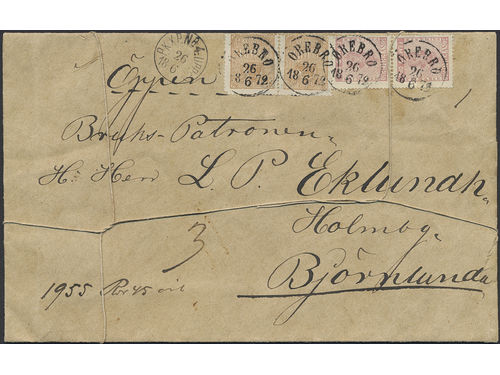 PKXP.Nº 4.UPP
26
6
ÖREBRO
26
6
1872
ÖREBRO
26
6
1872
ÖREBRO
26
6
1872
ÖREBRO
26
6
1872
Öppen
Bruks-Patronen
H: Herr L. P. Eklundh
Holmby
3
Björnlunda
1955